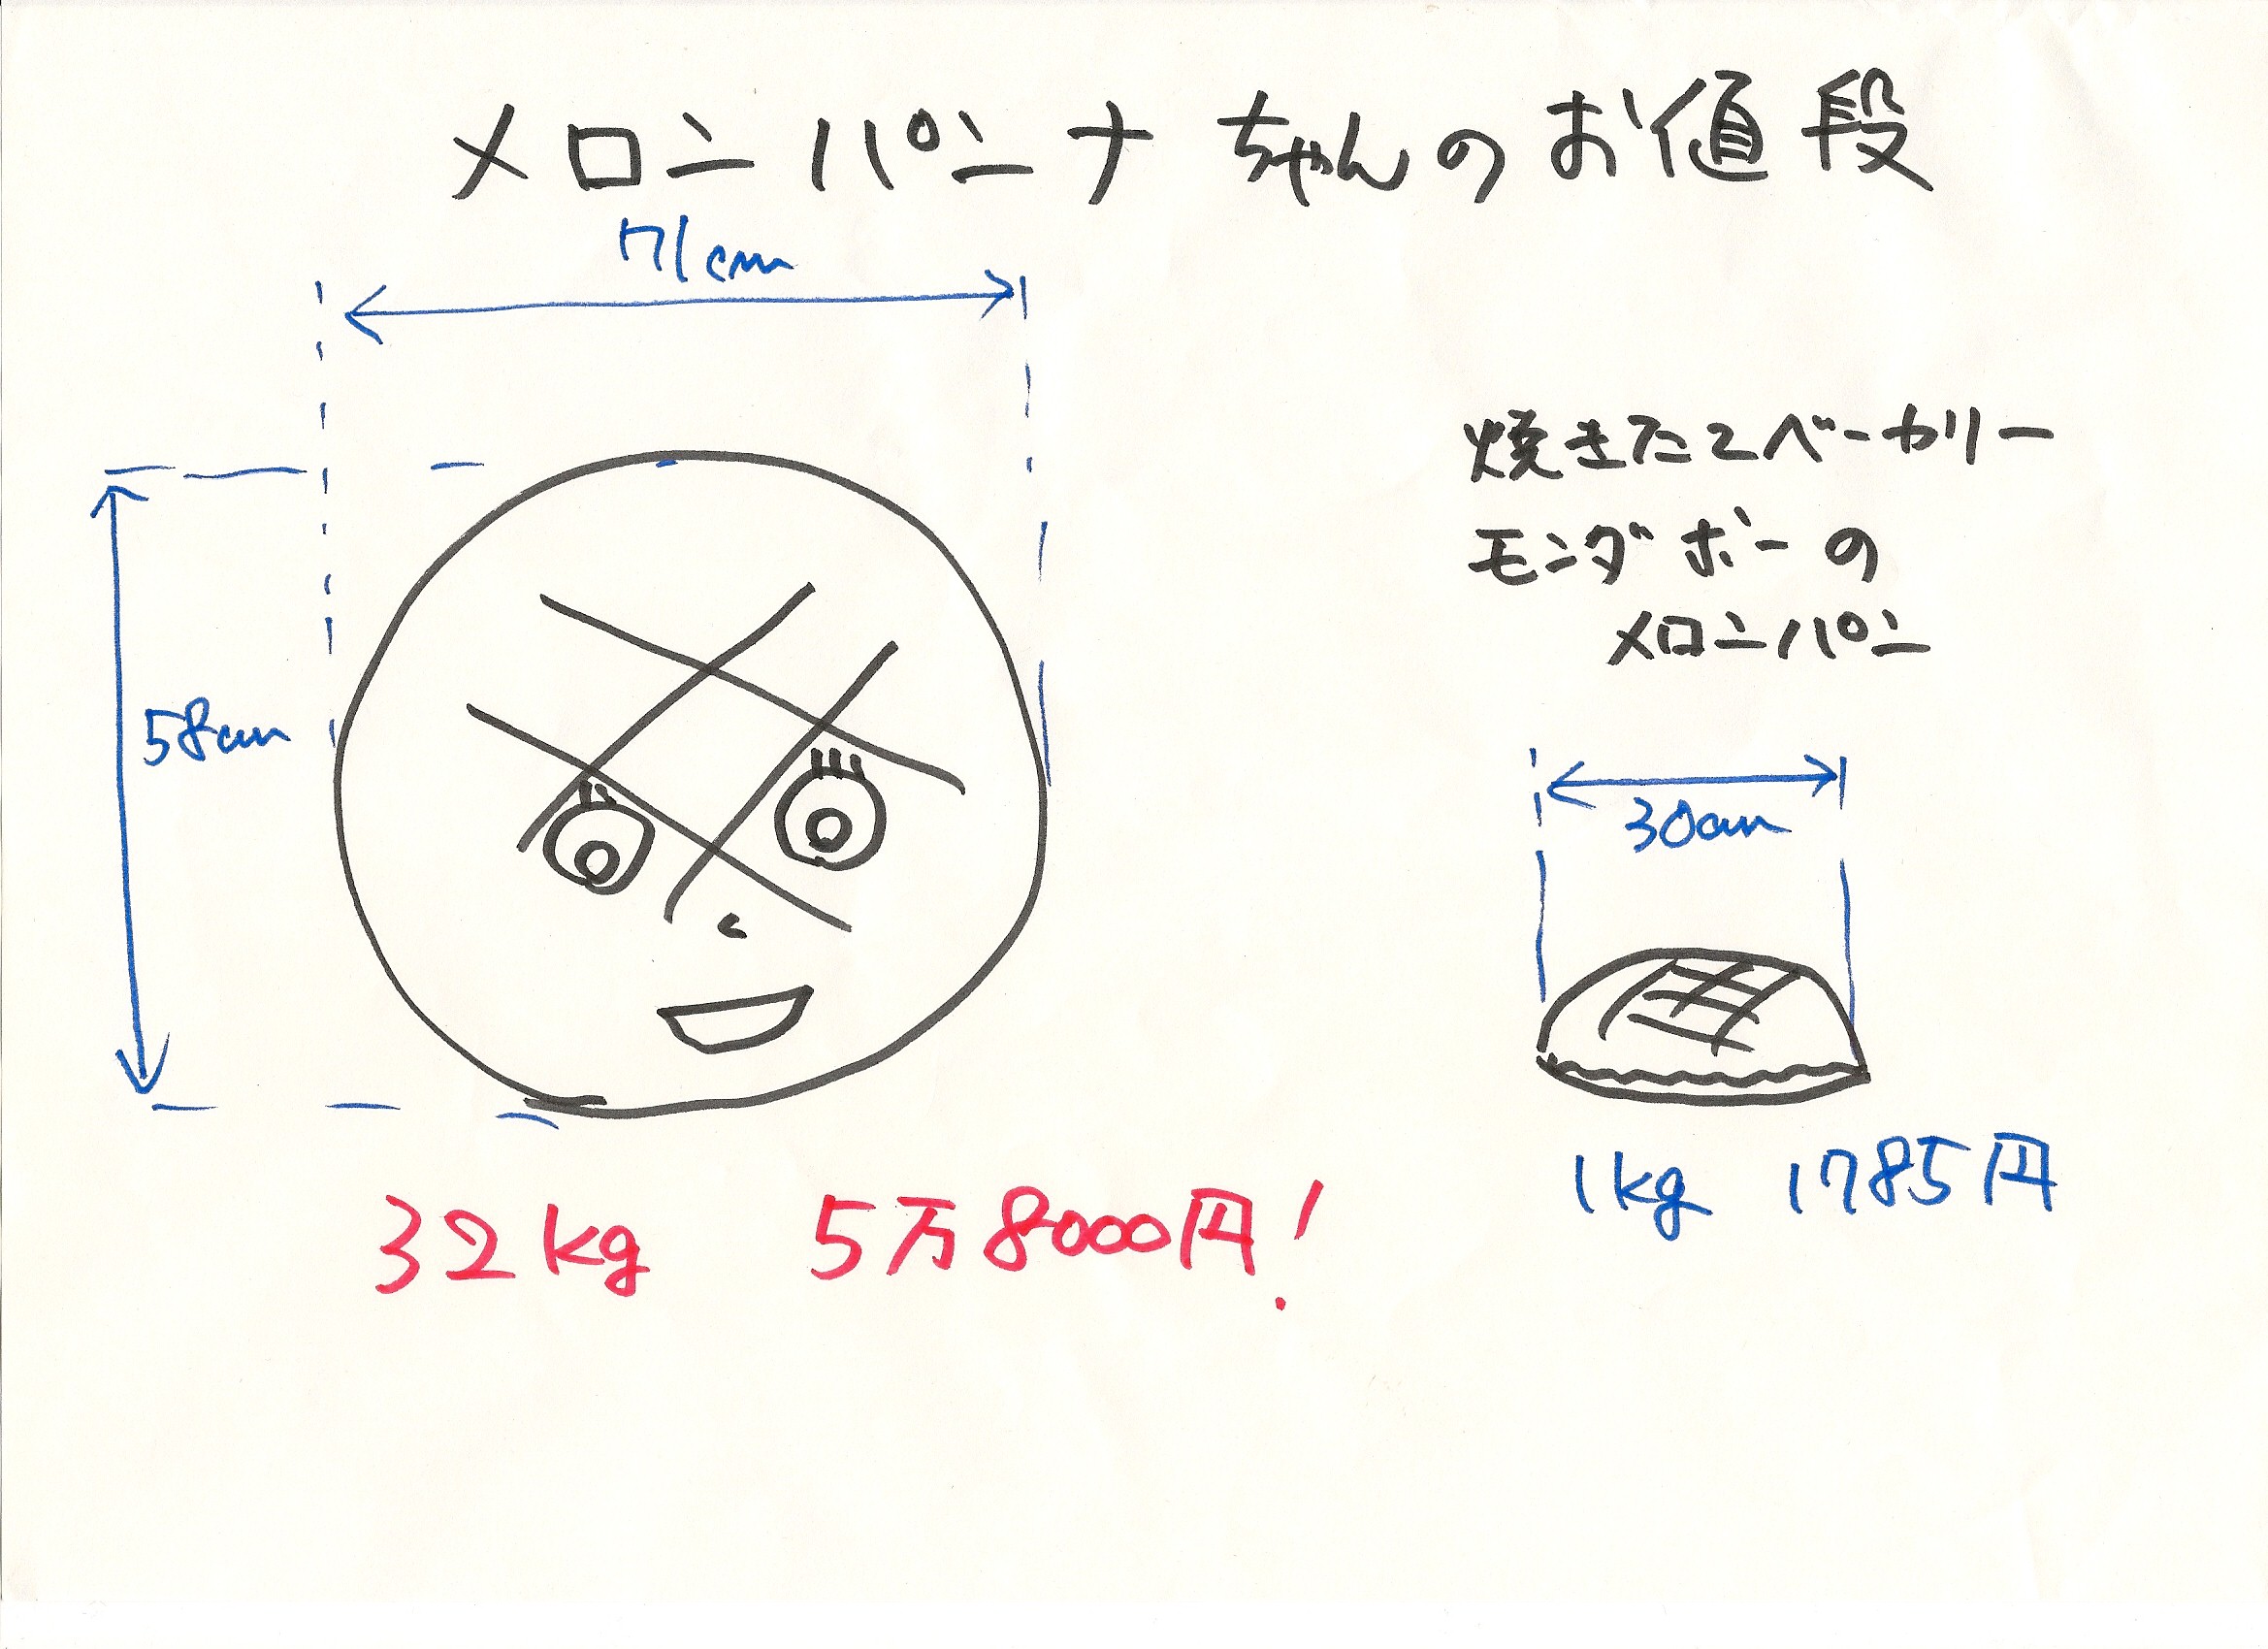 メロンパンナちゃんのお値段
71cm
58cm
焼きたてベーカリー
モンダボーの
メロンパン
30cm
1kg 1785円
32kg 5万8000円!